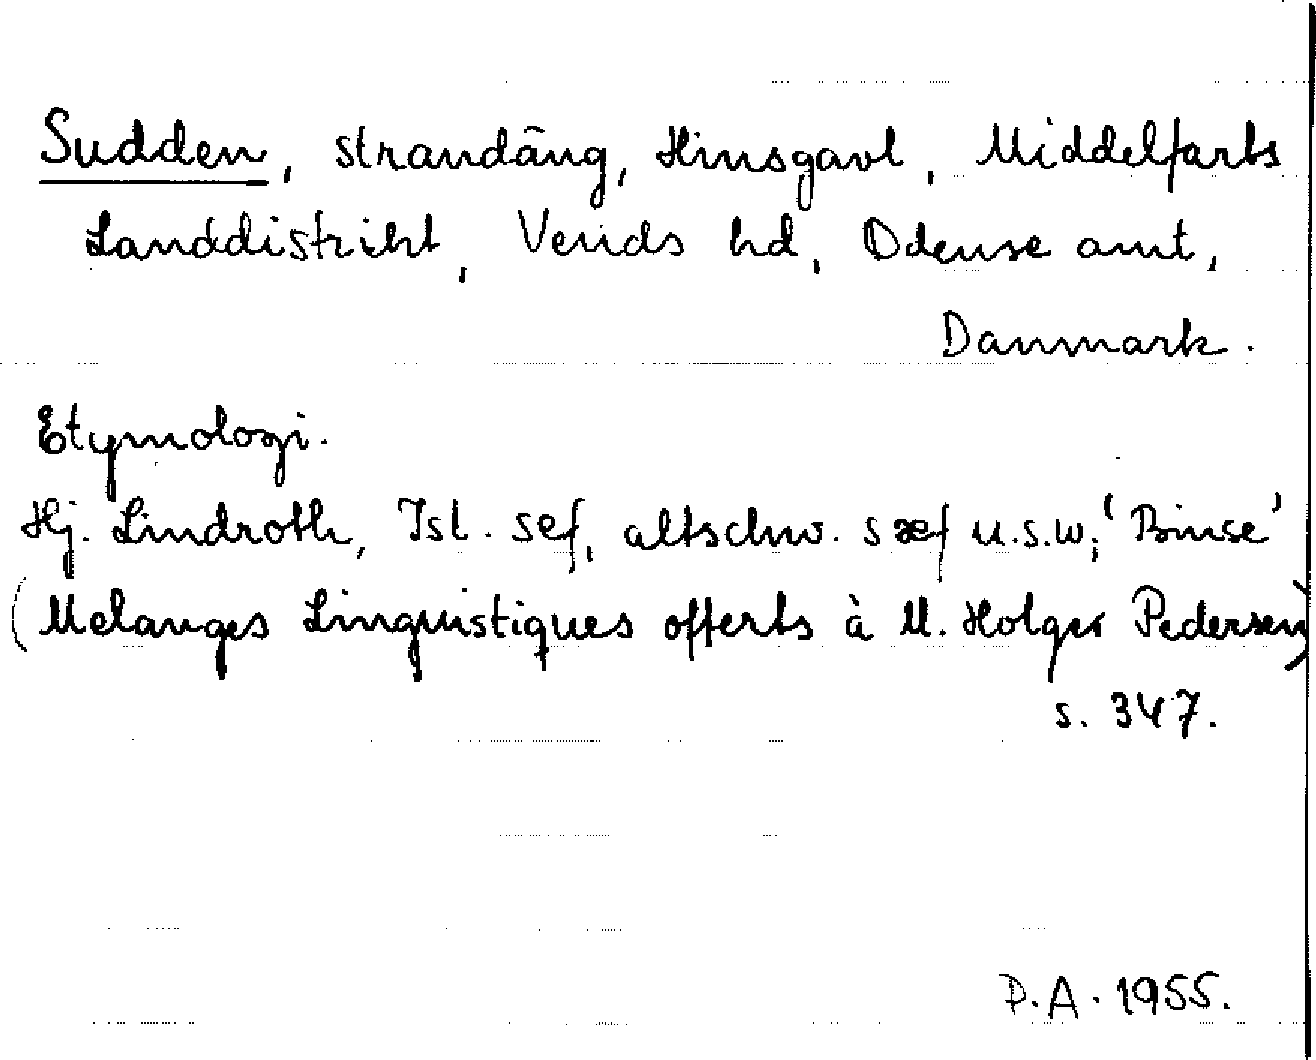 Sudden, strandäng, Hinsgavl, Middelfarts
Landdistrikt, Vends hd, Odense amt,
Danmark.
Etymologi.
Hj. Lindroth, Isl. sef, altschw. sæf u.s.w; 'Binse'
(Melanges Linguistiques offerts à M. Holger Pedersen)
s. 347.
P.A. 1955.